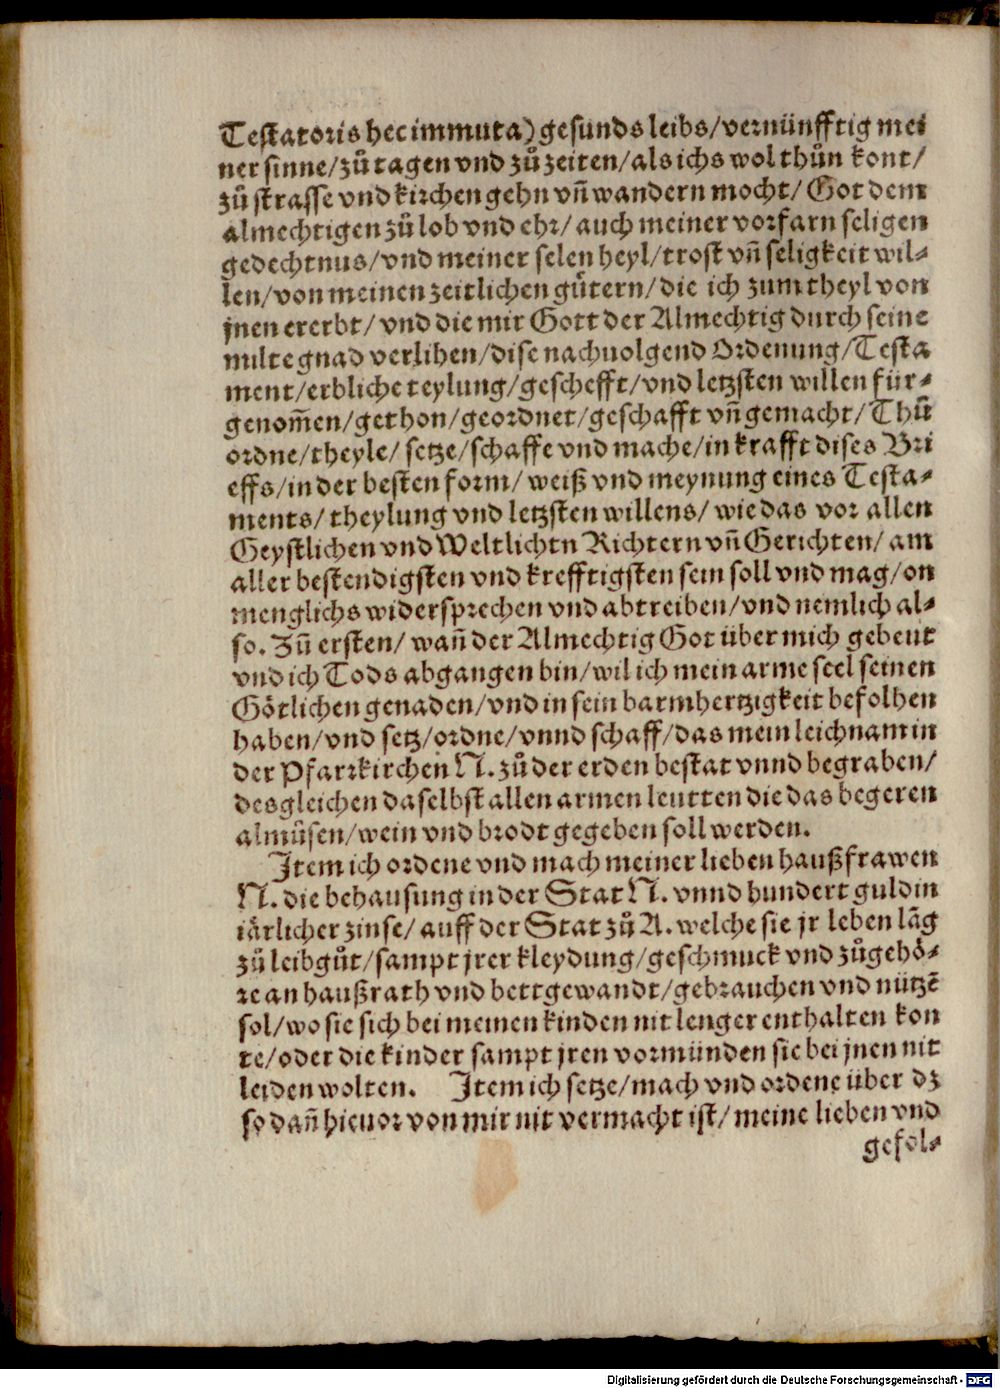 Testatoris hec immuta) gesunds leibs/vernünfftig mei
ner sinne/zů tagen vnd zů zeiten/als ichs wol thůn kont/
zů strasse vnd kirchen gehn vñ wandern mocht/ Got dem
almechtigen zů lob vnd ehr/ auch meiner vorfarn seligen
gedechtnus/vnd meiner selen heyl/trost vñ seligkeit wil⸗
len/von meinen zeitlichen gůtern/die ich zum theyl von
jnen ererbt/ vnd die mir Gott der Almechtig durch seine
milte gnad verlihen/dise nachuolgend Ordenung/Testa
ment/erbliche teylung/geschefft/vnd letzsten willen für⸗
genom̃en/gethon/geordnet/geschafft vñ gemacht/ Thů
ordne/theyle/ setze/schaffe vnd mache/in krafft dises Bri
effs/in der besten form/ weiß vnd meynung eines Testa⸗
ments/ theylung vnd letzsten willens/ wie das vor allen
Geystlichen vnd Weltlichtn Richtern vñ Gerichten/ am
aller bestendigsten vnd krefftigsten sein soll vnd mag/on
menglichs widersprechen vnd abtreiben/vnd nemlich al⸗
so. Zů ersten/ wañ der Almechtig Got über mich gebeut
vnd ich Tods abgangen bin/wil ich mein arme seel seinen
Götlichen genaden/vnd in sein barmhertzigkeit befolhen
haben/vnd setz/ordne/vnnd schaff/das mein leichnam in
der Pfarrkirchen N. zů der erden bestat vnnd begraben/
desgleichen daselbst allen armen leutten die das begeren
almůsen/wein vnd brodt gegeben soll werden.
Item ich ordene vnd mach meiner lieben haußfrawen
N. die behausung in der Stat N. vnnd hundert guldin
iärlicher zinse/ auff der Stat zů A. welche sie jr leben lãg
zů leibgůt/sampt jrer kleydung/geschmuck vnd zůgehö⸗
re an haußrath vnd bettgewandt/gebrauchen vnd nützẽ
sol/wo sie sich bei meinen kinden nit lenger enthalten kon
te/oder die kinder sampt jren vormünden sie bei jnen nit
leiden wolten. Item ich setze/mach vnd ordene über dz
so dañ hieuor von mir nit vermacht ist/ meine lieben vnd
gefol⸗
Digitalisierung gefördert durch die Deutsche Forschungsgemeinschaft - DFG